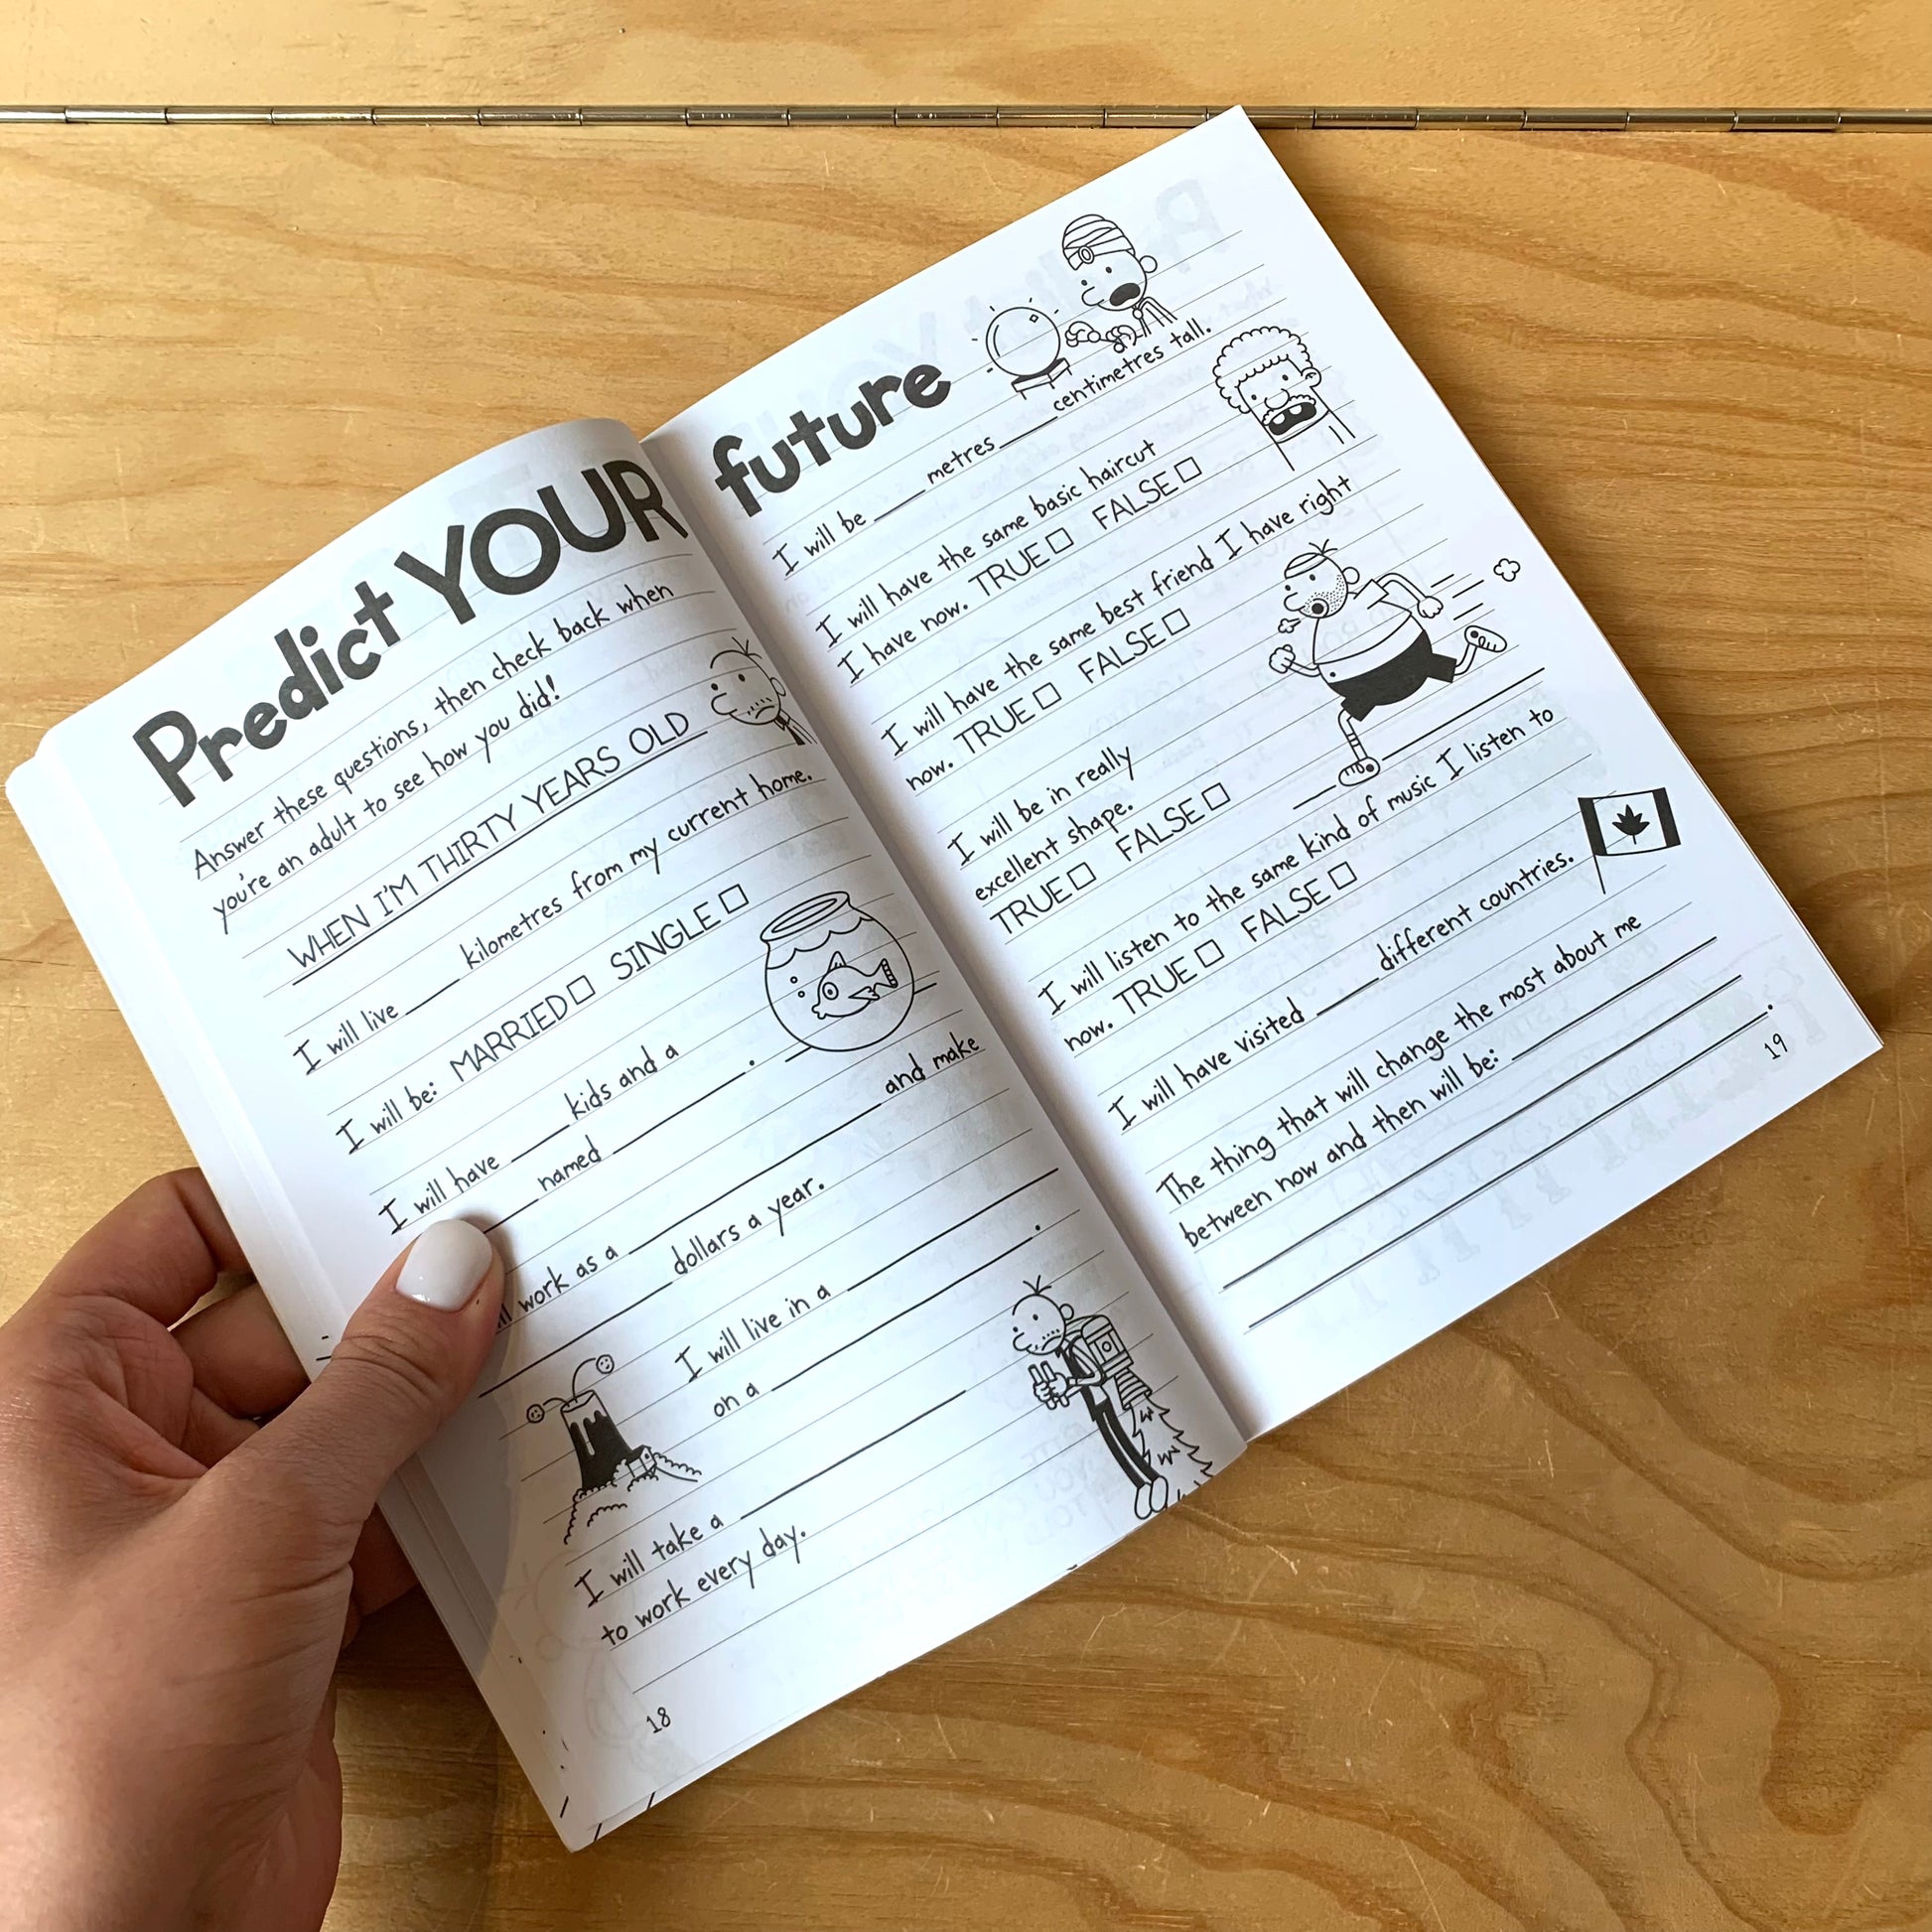 Predict YOUR future
Answer these questions, then check back when
you're an adult to see how you did!
WHEN I'M THIRTY YEARS OLD
I will live ____ kilometres from my current home.
I will be: MARRIED □ SINGLE □
I will have ____ kids and a
____ named ________.
work as a ____________ and make
____________ dollars a year.
I will live in a ____________
on a ____________.
I will take a ____________
to work every day.
18
I will be ____ metres ____ centimetres tall.
I will have the same basic haircut
I have now. TRUE □ FALSE □
I will have the same best friend I have right
now. TRUE □ FALSE □
I will be in really
excellent shape.
TRUE □ FALSE □
I will listen to the same kind of music I listen to
now. TRUE □ FALSE □
I will have visited ____ different countries.
The thing that will change the most about me
between now and then will be: ____________
____________
____________.
19